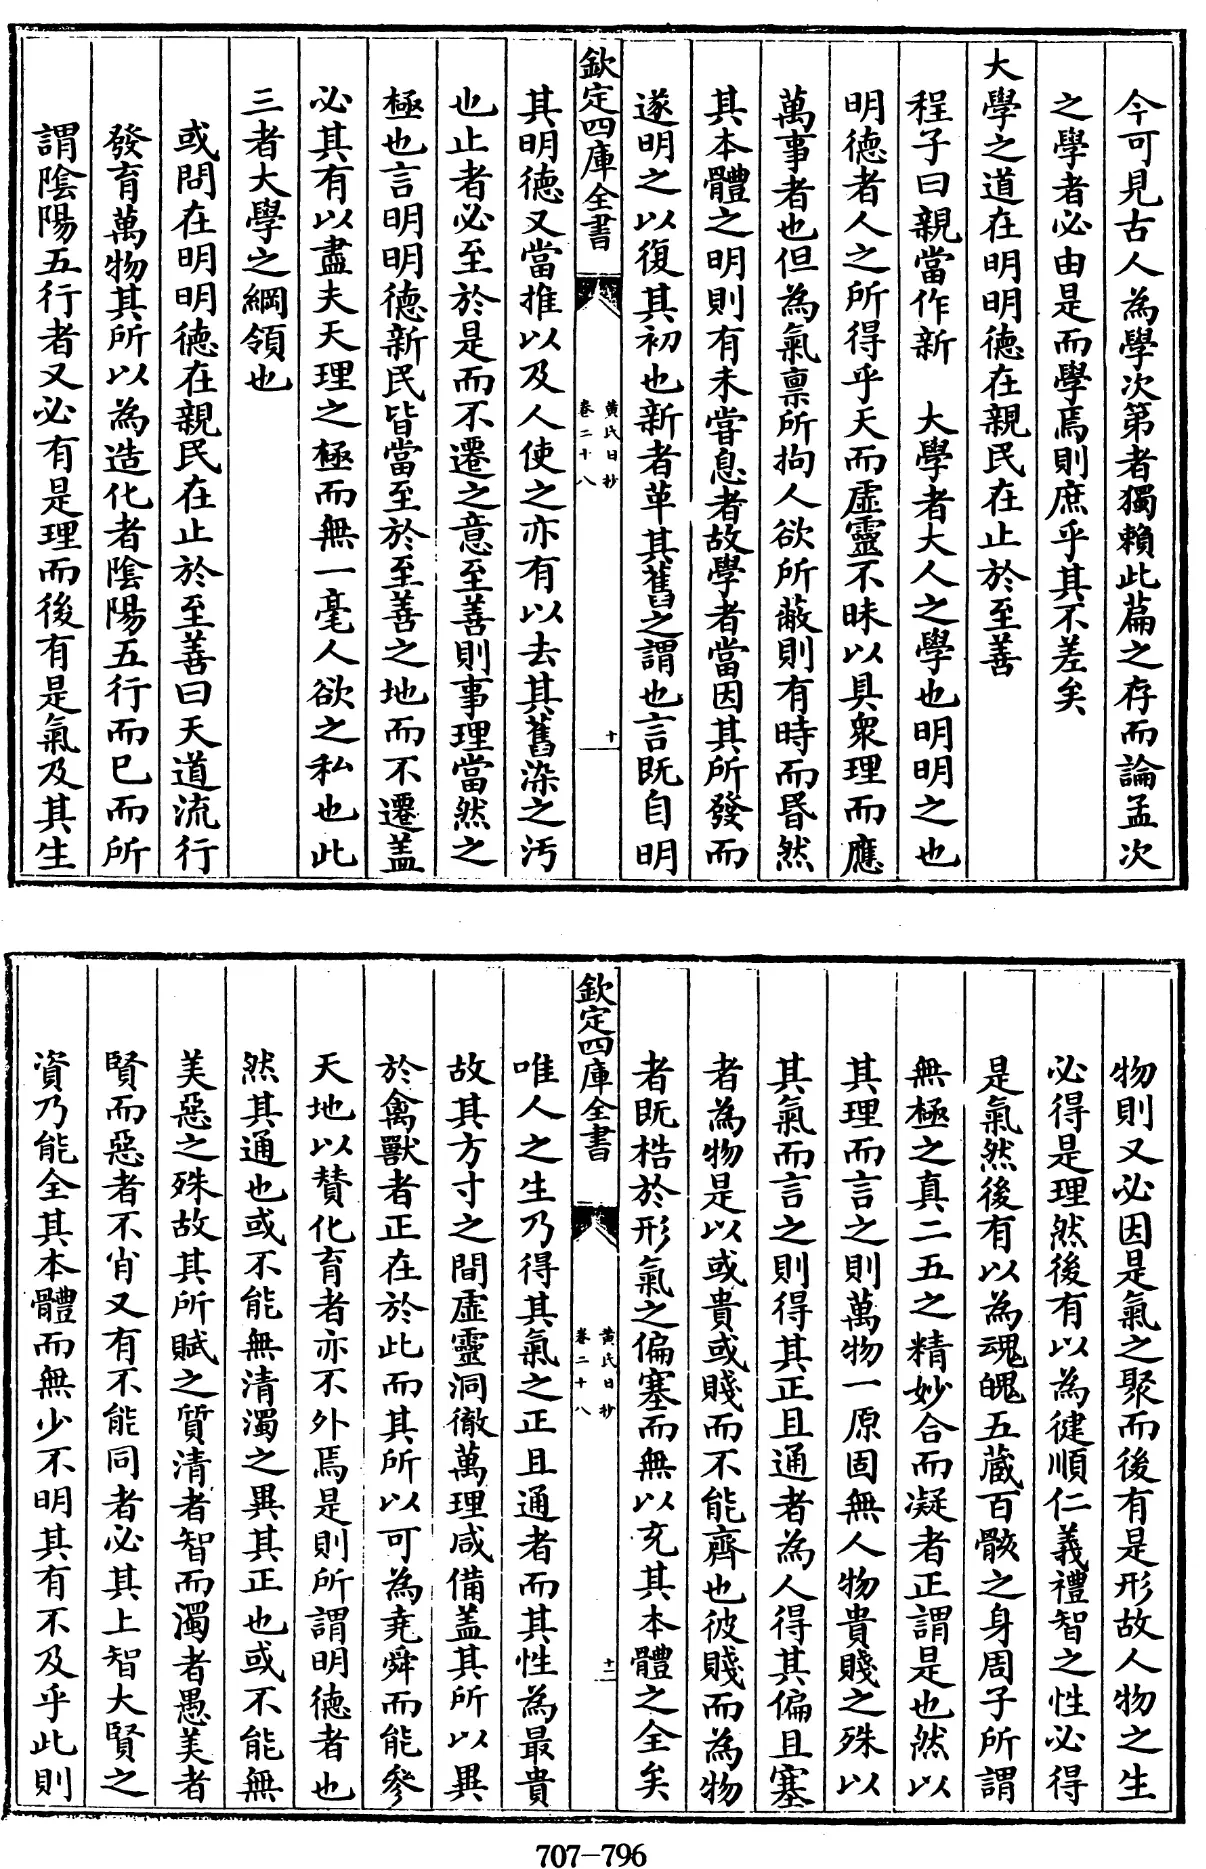 今可見古人為學次第者獨賴此篇之存而論孟次
之學者必由是而學焉則庶乎其不差矣
大學之道在明明德在親民在止於至善
程子曰親當作新　大學者大人之學也明明之也
明德者人之所得乎天而虛靈不昧以具衆理而應
萬事者也但為氣禀所拘人欲所蔽則有時而昏然
其本體之明則有未嘗息者故學者當因其所發而
遂明之以復其初也新者革其舊之謂也言既自明
欽定四庫全書
黃氏日抄
卷二十八
十
其明德又當推以及人使之亦有以去其舊染之汚
也止者必至於是而不遷之意至善則事理當然之
極也言明明德新民皆當至於至善之地而不遷盖
必其有以盡夫天理之極而無一毫人欲之私也此
三者大學之綱領也
或問在明明德在親民在止於至善曰天道流行
發育萬物其所以為造化者陰陽五行而已而所
謂陰陽五行者又必有是理而後有是氣及其生
物則又必因是氣之聚而後有是形故人物之生
必得是理然後有以為健順仁義禮智之性必得
是氣然後有以為魂魄五藏百骸之身周子所謂
無極之真二五之精妙合而凝者正謂是也然以
其理而言之則萬物一原固無人物貴賤之殊以
其氣而言之則得其正且通者為人得其偏且塞
者為物是以或貴或賤而不能齊也彼賤而為物
者既梏於形氣之偏塞而無以充其本體之全矣
欽定四庫全書
黃氏日抄
卷二十八
十一
唯人之生乃得其氣之正且通者而其性為最貴
故其方寸之間虛靈洞徹萬理咸備盖其所以異
於禽獸者正在於此而其所以可為堯舜而能參
天地以賛化育者亦不外焉是則所謂明德者也
然其通也或不能無清濁之異其正也或不能無
美惡之殊故其所賦之質清者智而濁者愚美者
賢而惡者不肖又有不能同者必其上智大賢之
資乃能全其本體而無少不明其有不及乎此則
707-796